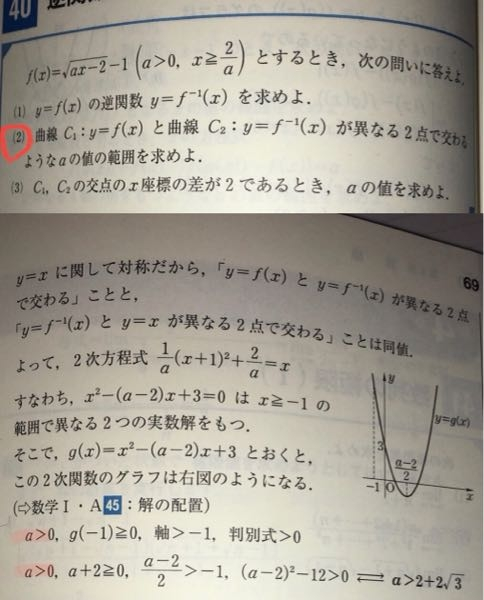 40
f(x)=√ax-2-1 (a>0, x≧2/a) とするとき，次の問いに答えよ．
(1) y=f(x) の逆関数 y=f⁻¹(x) を求めよ．
(2) 曲線 C₁：y=f(x) と曲線 C₂：y=f⁻¹(x) が異なる2点で交わる
ようなaの値の範囲を求めよ．
(3) C₁，C₂の交点のx座標の差が2であるとき，aの値を求めよ．
69
y=x に関して対称だから，「y=f(x) と y=f⁻¹(x) が異なる2点
で交わる」ことと，
「y=f⁻¹(x) と y=x が異なる2点で交わる」ことは同値．
よって，2次方程式 1/a(x+1)²+2/a=x
すなわち，x²-(a-2)x+3=0 は x≧-1 の
範囲で異なる2つの実数解をもつ．
そこで，g(x)=x²-(a-2)x+3 とおくと，
この2次関数のグラフは右図のようになる．
(⇨数学Ⅰ・A45：解の配置)
y
y=g(x)
3
a-2/2
-1 O x
a>0，g(-1)≧0，軸>-1，判別式>0
a>0，a+2≧0，a-2/2>-1，(a-2)²-12>0 ⟺ a>2+2√3